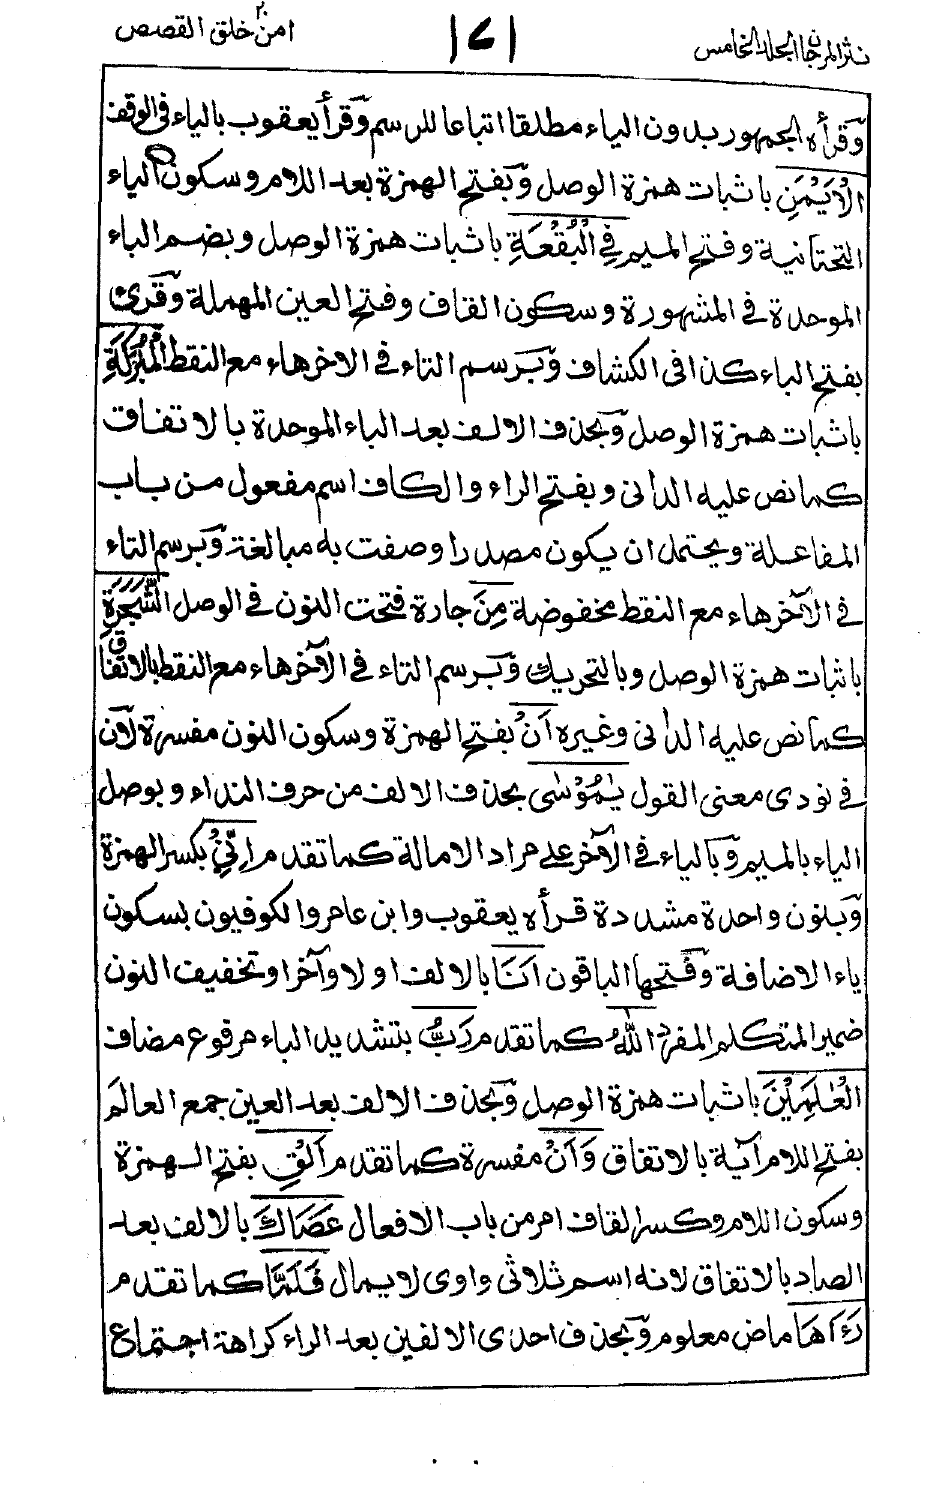 نثر المرجان الجلد الخامس
١٧١
امن خلق ٢٠ القصص
وقرأه الجمهور بدون الياء مطلقا اتباعا للرسم وقرأ يعقوب بالياء في الوقف
الْاَيْمَنِ باثبات همزة الوصل وبفتح الهمزة بعد اللام وسكون الياء
التحتانية وفتح الميم فِي الْبُقْعَةِ باثبات همزة الوصل وبضم الباء
الموحدة في المشهورة وسكون القاف وفتح العين المهملة وقرئ
بفتح الباء كذا في الكشاف وبرسم التاء في الاخرهاء مع النقط الْمُبٰرَكَةِ
باثبات همزة الوصل وبحذف الالف بعد الباء الموحدة بالاتفاق
كما نص عليه الداني وبفتح الراء والكاف اسم مفعول من باب
المفاعلة ويحتمل ان يكون مصدرا وصفت به مبالغة وبرسم التاء
في الآخرهاء مع النقط مخفوضة مِنَ جارة فتحت النون في الوصل الشَّجَرَةِ
باثبات همزة الوصل وبالتحريك وبرسم التاء في الآخرهاء مع النقط بالاتفاق
كما نص عليه الداني وغيره اَنْ بفتح الهمزة وسكون النون مفسرة لان
في نودى معنى القول يٰمُوْسٰى بحذف الالف من حرف النداء وبوصل
الياء بالميم وبالياء في الآخر على مراد الامالة كما تقدم اِنِّيْ بكسر الهمزة
وبنون واحدة مشددة قرأه يعقوب وابن عامر والكوفيون بسكون
ياء الاضافة وفتحها الباقون اَنَا بالالف اولا وآخرا وتخفيف النون
ضمير المتكلم المفرد اللهُ كما تقدم رَبُّ بتشديد الباء مرفوع مضاف
الْعٰلَمِيْنَ باثبات همزة الوصل وبحذف الالف بعد العين جمع العالَم
بفتح اللام آية بالاتفاق وَاَنْ مفسرة كما تقدم اَلْقِ بفتح الهمزة
وسكون اللام وكسر القاف امر من باب الافعال عَصَاكَ بالالف بعد
الصاد بالاتفاق لانه اسم ثلاثي واوى لا يمال فَلَمَّا كما تقدم
رَءَاهَا ماض معلوم وبحذف احدى الالفين بعد الراء كراهة اجتماع